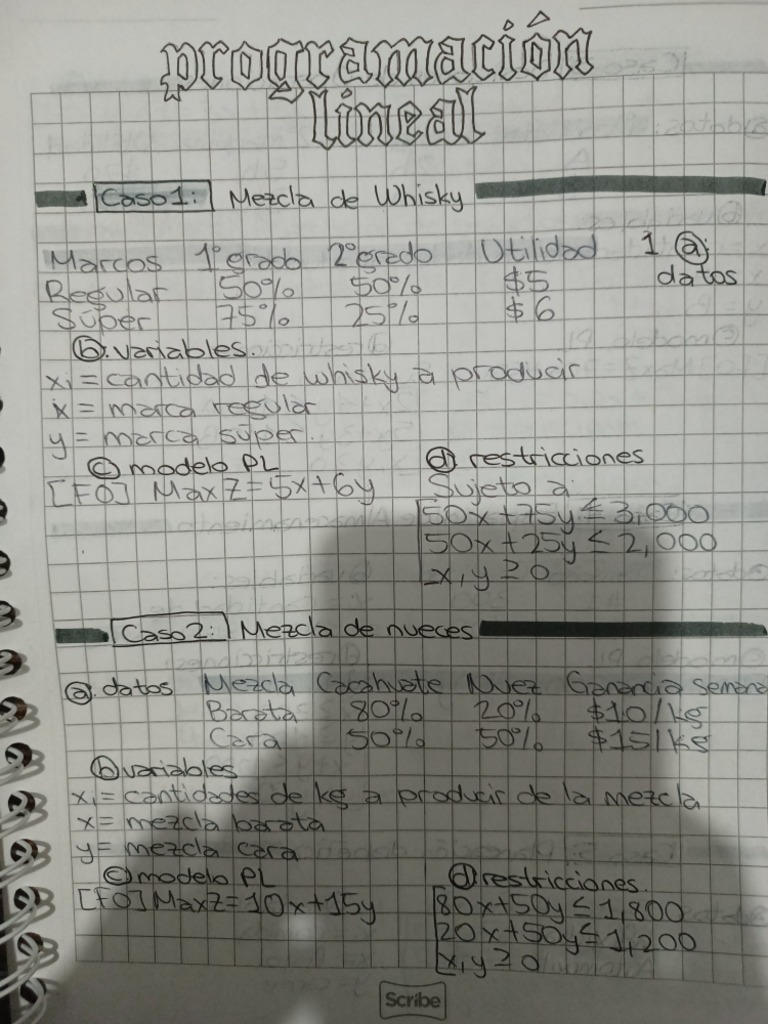 programación
lineal
Caso 1: Mezcla de Whisky
Marcas 1° grado 2° grado Utilidad 1 a.
Regular 50% 50% $5 datos
Súper 75% 25% $6
b. variables.
xi = cantidad de whisky a producir
x = marca regular
y = marca súper.
c modelo PL
[FO] Max Z = 5x + 6y
d restricciones
Sujeto a:
50x + 75y ≤ 3,000
50x + 25y ≤ 2,000
x, y ≥ 0
Caso 2: Mezcla de nueces
a. datos Mezcla Cacahuate Nuez Ganancia semana
Barata 80% 20% $10/kg
Cara 50% 50% $15/kg
b variables
xi = cantidades de kg a producir de la mezcla
x = mezcla barata
y = mezcla cara
c modelo PL
[FO] Max Z = 10x + 15y
d restricciones.
80x + 50y ≤ 1,800
20x + 50y ≤ 1,200
x, y ≥ 0
Scribe